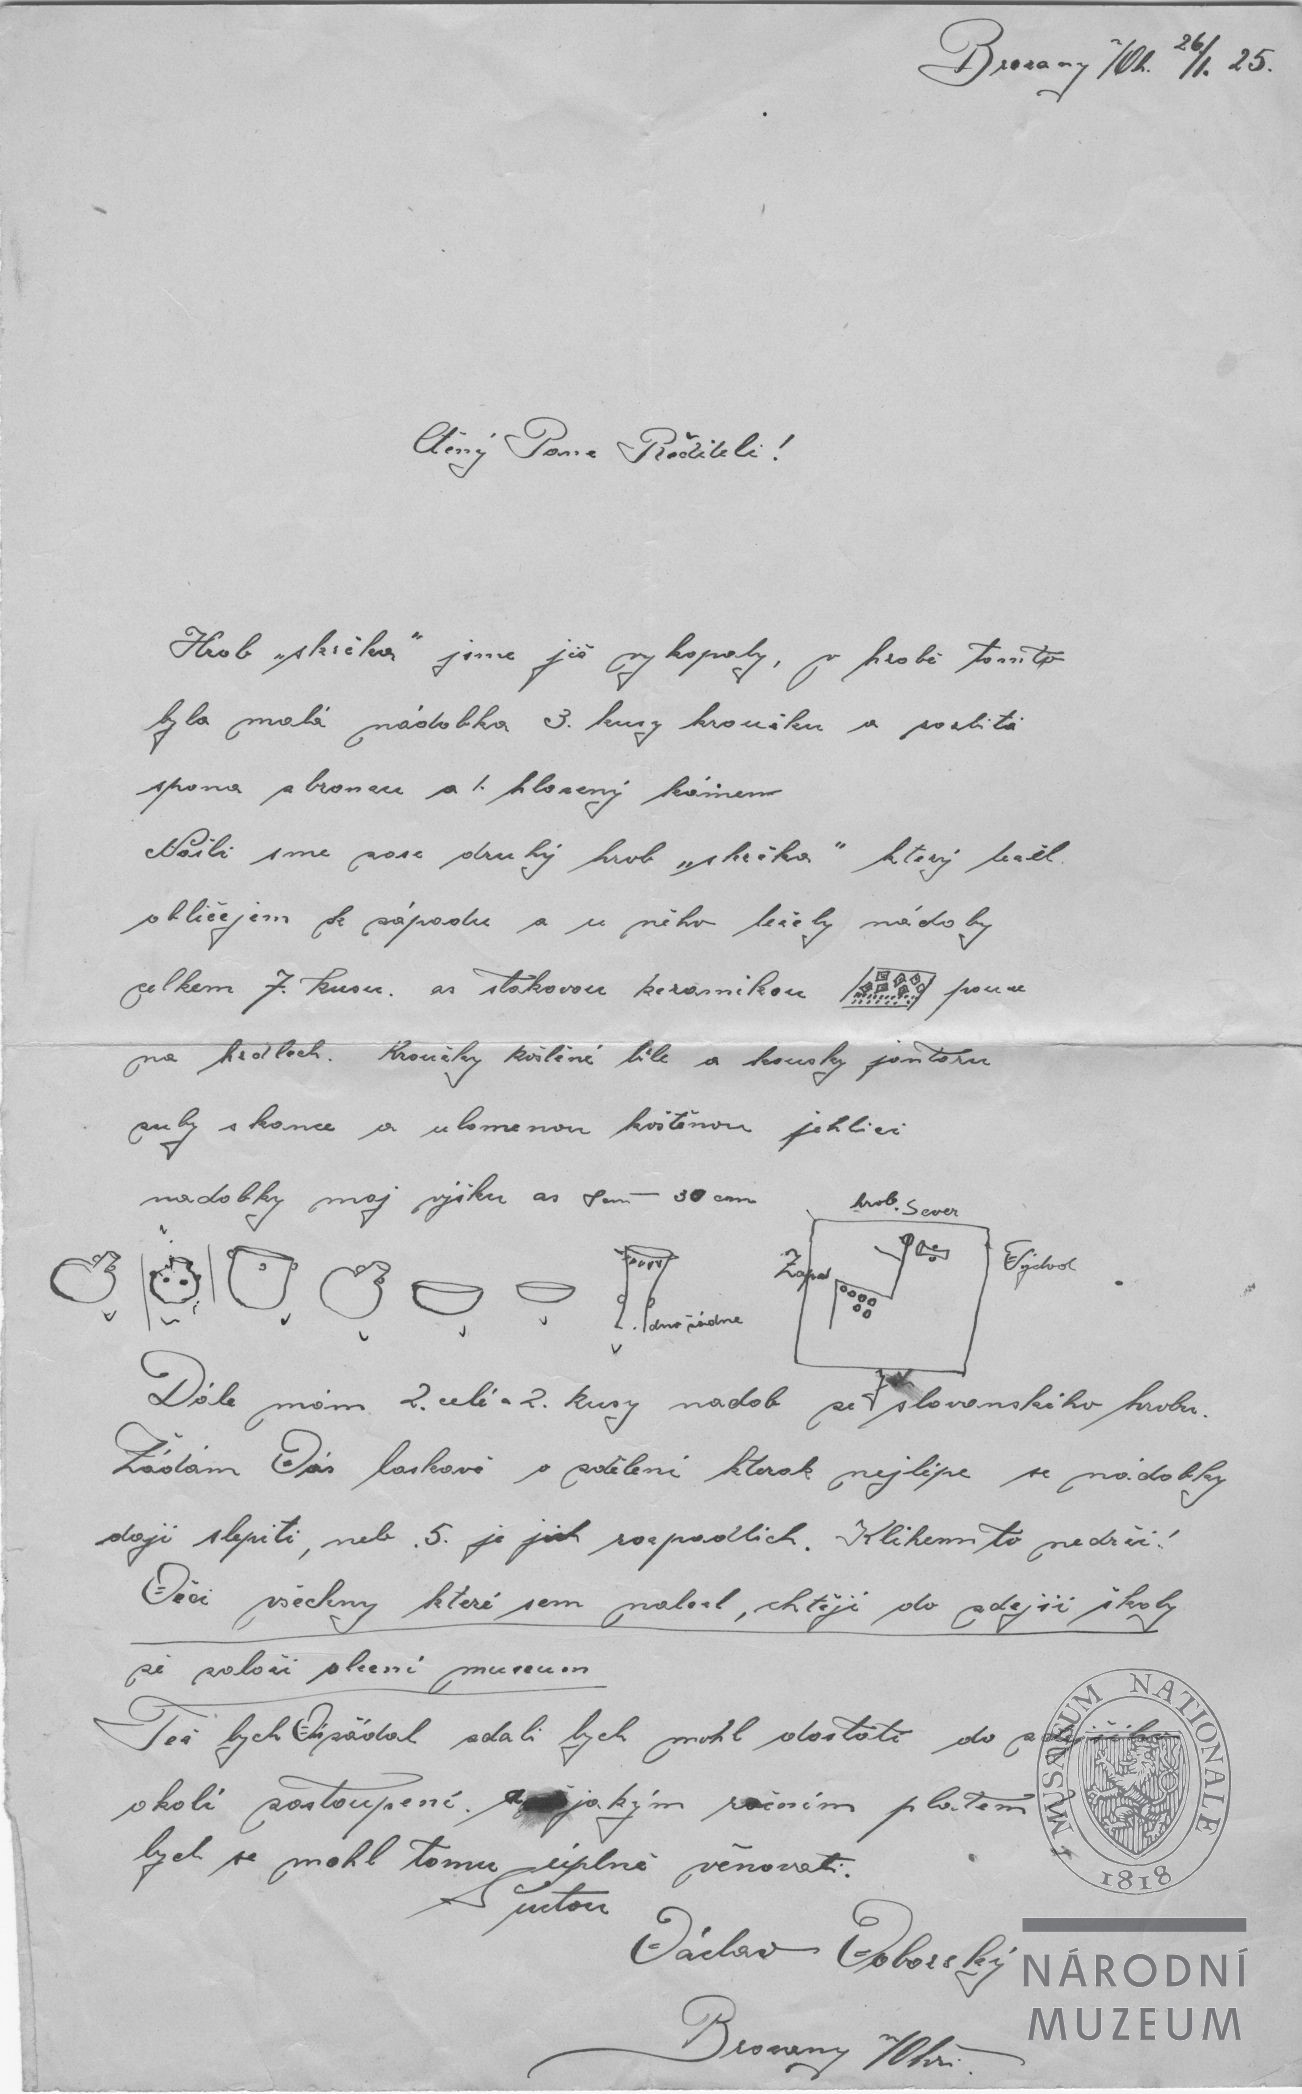 Brozany n/Oh. 26/1. 25.
Ctěný Pane Řediteli!
Hrob „skrčka" jsme již vykopaly, v hrobě tomto
byla malá nádobka 3. kusy kroužku a rozbitá
spona z bronzu a 1. hlazený kámen
Našli sme zase druhý hrob „skrčka" který ležel
obličejem k západu a u něho ležely nádoby
celkem 7. kusu. as takovou keramikou pouze
na hrdlech. Kroužky koštěné bíle a kousky jantaru
zuby z kance a ulomenou koštěnou jehlici
nadobky maj vyšku as 8 cm – 30 cm
hrob. Sever
Zapad
Východ
dno žádne
Jih
Dále mám 2. celé a 2. kusy nadob ze slovanského hrobu.
Žádám Vás laskavě o sdělení kterak nejlépe se nádobky
daji slepiti, neb .5. je jich rozpadlich. Klihem to nedrží!
Věci všechny které sem nalezl, chtějí do zdejší školy
že založi obecní museum
Též bych Vás žádal zdali bych mohl dostati do zdejšího
okolí zastoupení. jakým ročním platem
bych se mohl tomu úplně věnovati.
S uctou
Václav Voborský
Brozany n/Ohří.
MUSAEUM NATIONALE
1818
NÁRODNÍ
MUZEUM